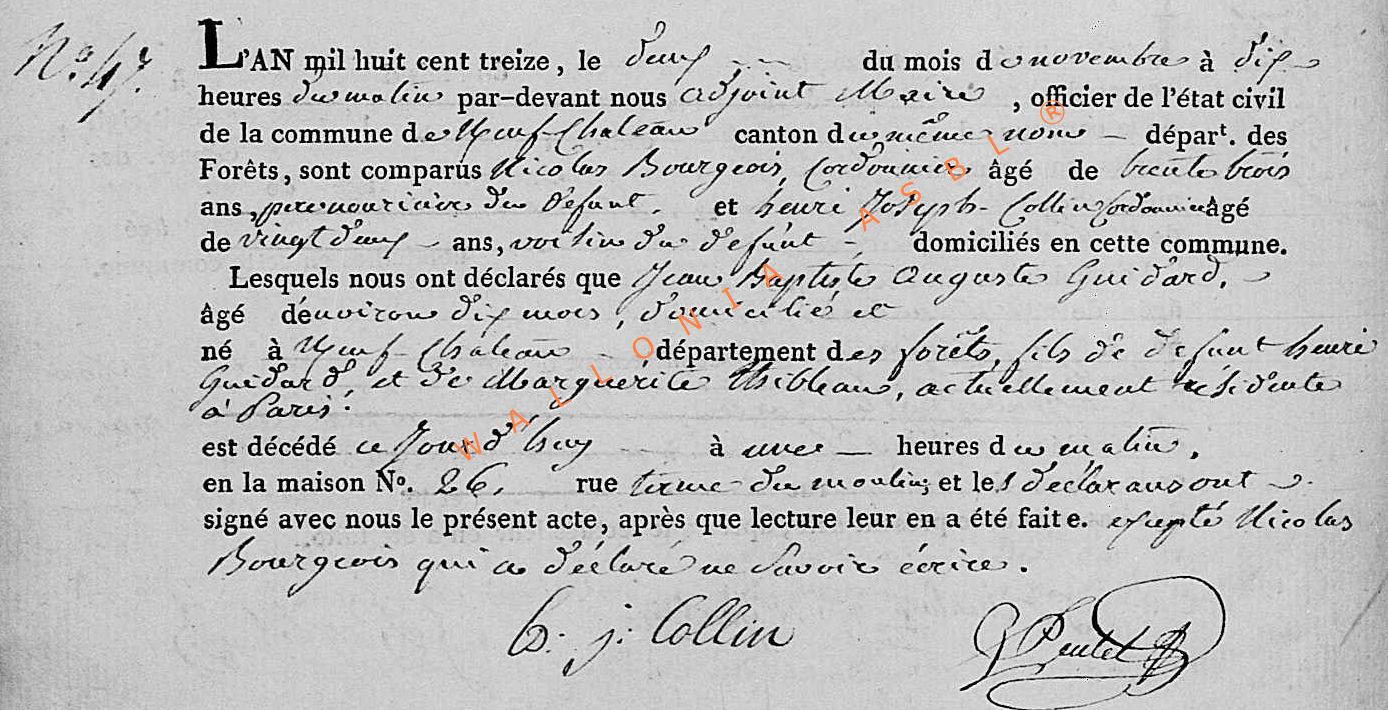 No. 47.
L'AN mil huit cent treize, le deux du mois de novembre à dix
heures du matin par-devant nous adjoint Maire, officier de l'état civil
de la commune de Neuf-Chateau canton du même nom départ. des
Forêts, sont comparus Nicolas Bourgeois, Cordonnier âgé de trente trois
ans, pere nouricier du défunt, et henri Joseph Collin Cordonnier âgé
de vingt deux ans, voisin du defunt domiciliés en cette commune.
Lesquels nous ont déclarés que Jean Baptiste Auguste Guidard,
âgé d'environ dix mois, domicilié et
né à Neuf-Château département des forêts, fils de defunt henri
Guidard, et de Marguerite Thibleau, actuellement résidente
à Paris.
est décédé ce Jourd'huy à une heures du matin,
en la maison No. 26, rue terme du moulin, et les déclarans ont
signé avec nous le présent acte, après que lecture leur en a été faite. excepté Nicolas
Bourgeois qui a déclaré ne Savoir écrire.
h. j. Collin
WALLONIA ASBL ®